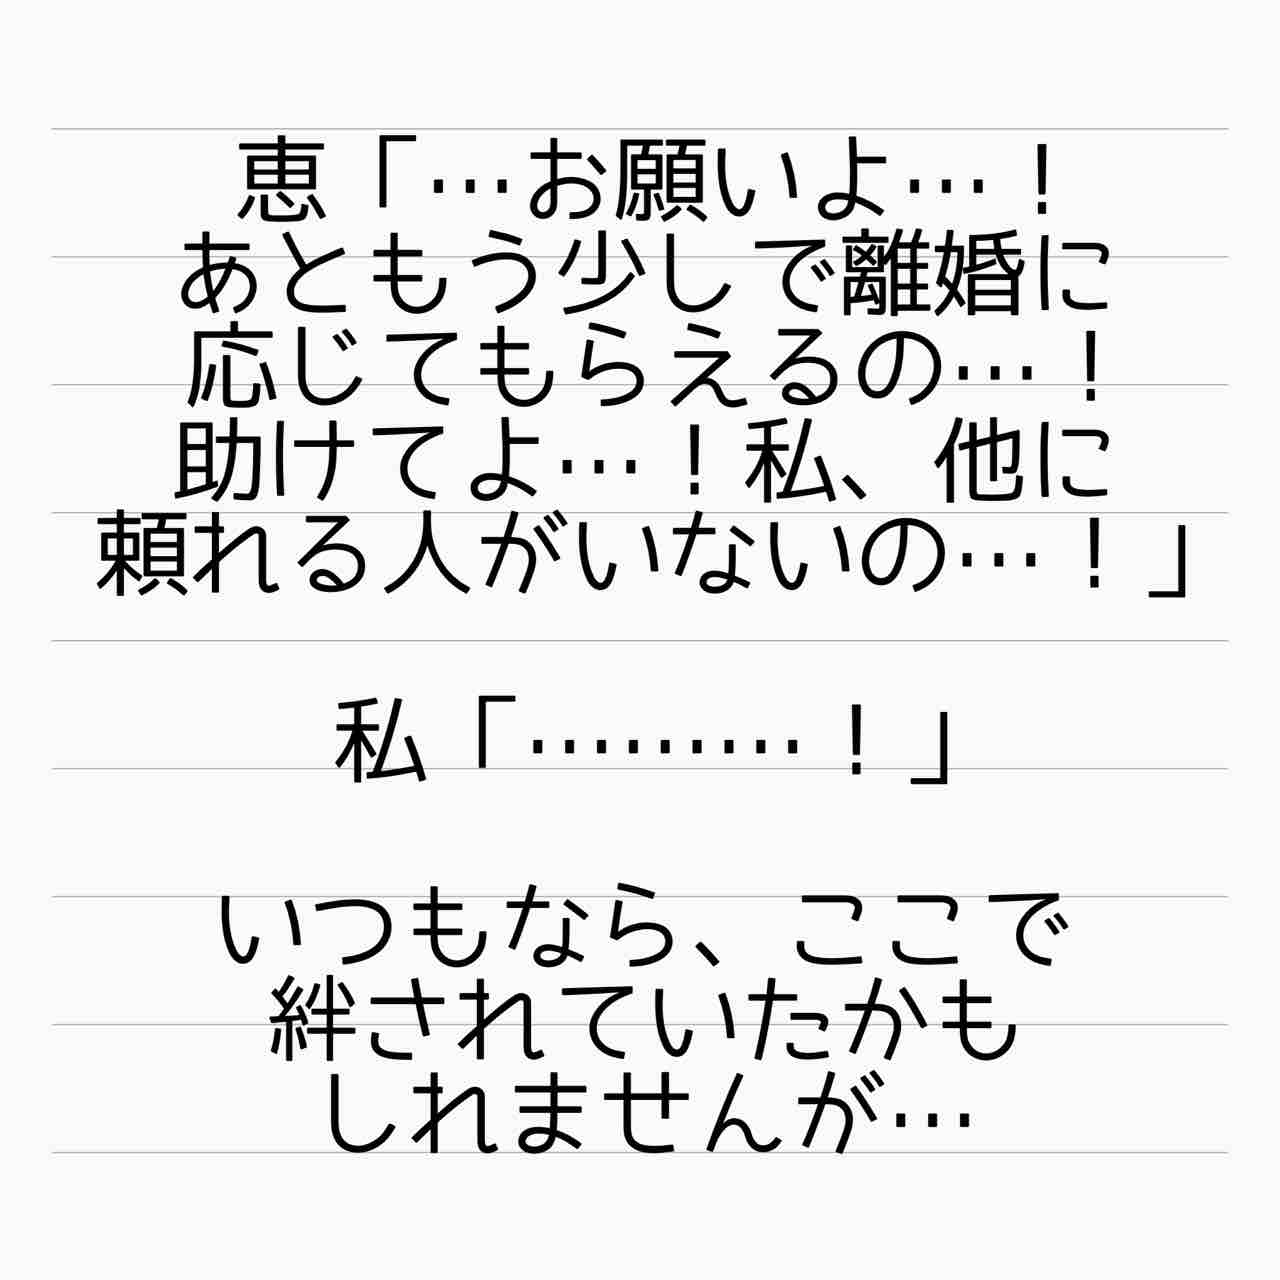 恵「…お願いよ…！
あともう少しで離婚に
応じてもらえるの…！
助けてよ…！私、他に
頼れる人がいないの…！」
私「………！」
いつもなら、ここで
絆されていたかも
しれませんが…